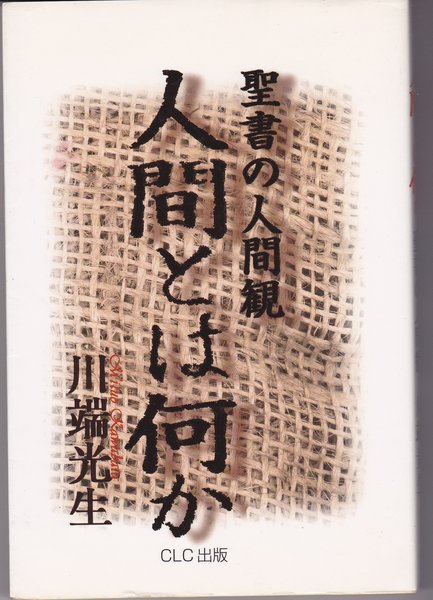 聖書の人間観
人間とは何か
川端光生
Mitsuo Kawabata
CLC出版